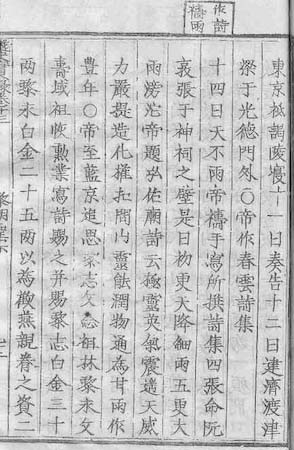 作詩
禱雨
東京祗謁陵寢十一日奏告十二日建齋渡津
祭于光德門外○帝作春雲詩集
十四日天不雨帝禱手寫所撰詩集四張命阮
袞張于神祠之壁是日初更天降細雨五更大
雨滂沱帝題弘佑廟詩云極靈英氣震遐天威
力嚴提造化權扣問靈能潤物通為甘雨作
豐年○帝至藍京追思黎志文祖林黎来文
壽域祖恢勲業寫詩賜之并賜黎志白金三十
兩黎来白金二十五兩以為歡燕親眷之資二